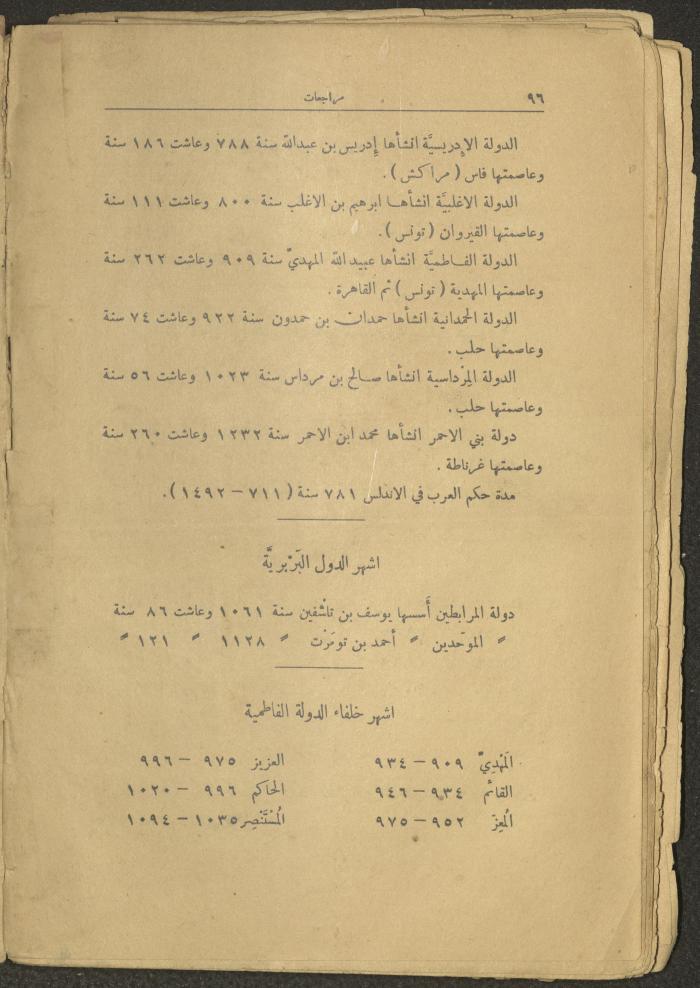 ٩٦ مراجعات
الدولة الإدريسيَّة انشأها إدريس بن عبدالله سنة ٧٨٨ وعاشت ١٨٦ سنة
وعاصمتها فاس (مراكش).
الدولة الاغلبيَّة انشأهـا ابرهيم بن الاغلب سنة ٨٠٠ وعاشت ١١١ سنة
وعاصمتها القيروان (تونس).
الدولة الفـاطميَّة انشأها عبيد الله المهديّ سنة ٩٠٩ وعاشت ٢٦٢ سنة
وعاصمتها المهدية (تونس) ثم القاهرة.
الدولة الحمدانية انشأها حمدان بن حمدون سنة ٩٢٢ وعاشت ٧٤ سنة
وعاصمتها حلب.
الدولة المِرْداسية انشأها صـالح بن مرداس سنة ١٠٢٣ وعاشت ٥٦ سنة
وعاصمتها حلب.
دولة بني الاحمر انشأها محمد ابن الاحمر سنة ١٢٣٢ وعاشت ٢٦٠ سنة
وعاصمتها غرناطة.
مدة حكم العرب في الاندلس ٧٨١ سنة (٧١١ – ١٤٩٢).
اشهر الدول البَرْبريَّة
دولة المرابطين أَسسها يوسف بن تاشْفين سنة ١٠٦١ وعاشت ٨٦ سنة
〃 الموحّدين 〃 أحمد بن تومَرْت 〃 ١١٢٨ 〃 ١٢١ 〃
اشهر خلفاء الدولة الفاطمية
المَهْديّ ٩٠٩ – ٩٣٤ العزيز ٩٧٥ – ٩٩٦
القائم ٩٣٤ – ٩٤٦ الحاكم ٩٩٦ – ١٠٢٠
المُعِزّ ٩٥٢ – ٩٧٥ المُسْتَنْصِر ١٠٣٥ – ١٠٩٤